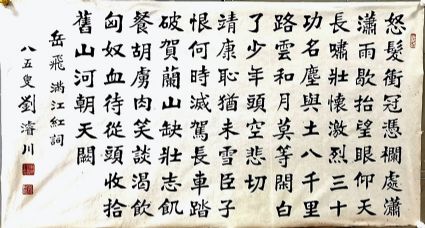 怒髮衝冠憑欄處瀟
瀟雨歇抬望眼仰天
長嘯壯懷激烈三十
功名塵與土八千里
路雲和月莫等閒白
了少年頭空悲切
靖康恥猶未雪臣子
恨何時滅駕長車踏
破賀蘭山缺壯志飢
餐胡虜肉笑談渴飲
匈奴血待從頭收拾
舊山河朝天闕
岳飛 滿江紅詞
八五叟劉濬川